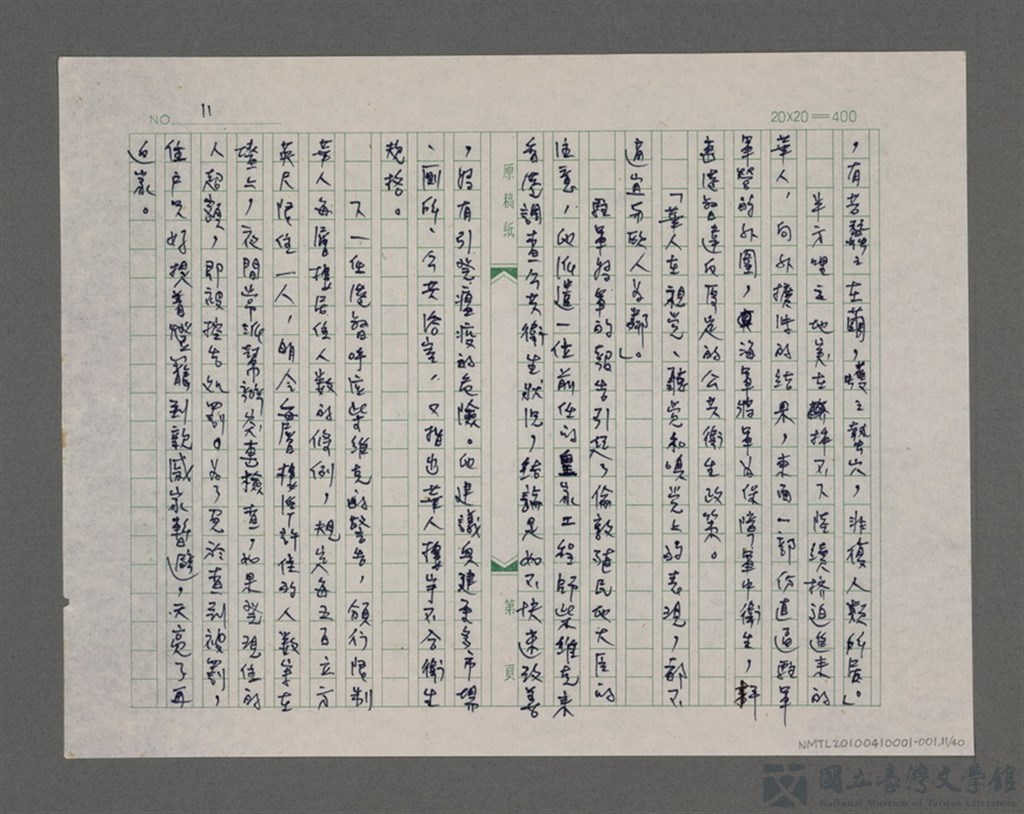 NO. 11
20X20=400
，有若蠶之在繭，蠖之蟄穴，非復人類所居」。
半方哩土地實在擠不下陸續擠迫進來的
華人，向外擴伸的結果，東面一部份直逼駐軍
軍營的外圍，海軍將軍為保障軍中衛生，
責港督違反原定的公共衛生政策。
「華人在視覺、聽覺和嗅覺上的表現，都不
適宜與歐人為鄰」。
駐軍將軍的報告引起了倫敦殖民地大臣的
注意，他派遣一位前任的皇家工程師柴維克來
香港調查公共衛生狀況，結論是如不快速改善
，將有引發瘟疫的危險。他建議興建更多市場
、廁所、公共浴室，又指出華人樓宇不合衛生
規格。
下一任港督呼應柴維克的警告，頒行限制
華人每層樓居住人數的條例，規定每五百立方
英尺限住一人，明令每層樓準許住的人數寫在
牆上，夜間常派幫辦突擊檢查，如果發現住的
人超額，即被控告處罰。為了免於查到被罰，
住戶只好提着燈籠到親戚家暫避，天亮了再
返家。
原稿紙
第 頁
NMTL20100410001-001.11/40
國立臺灣文學館
National Museum of Taiwan Literature